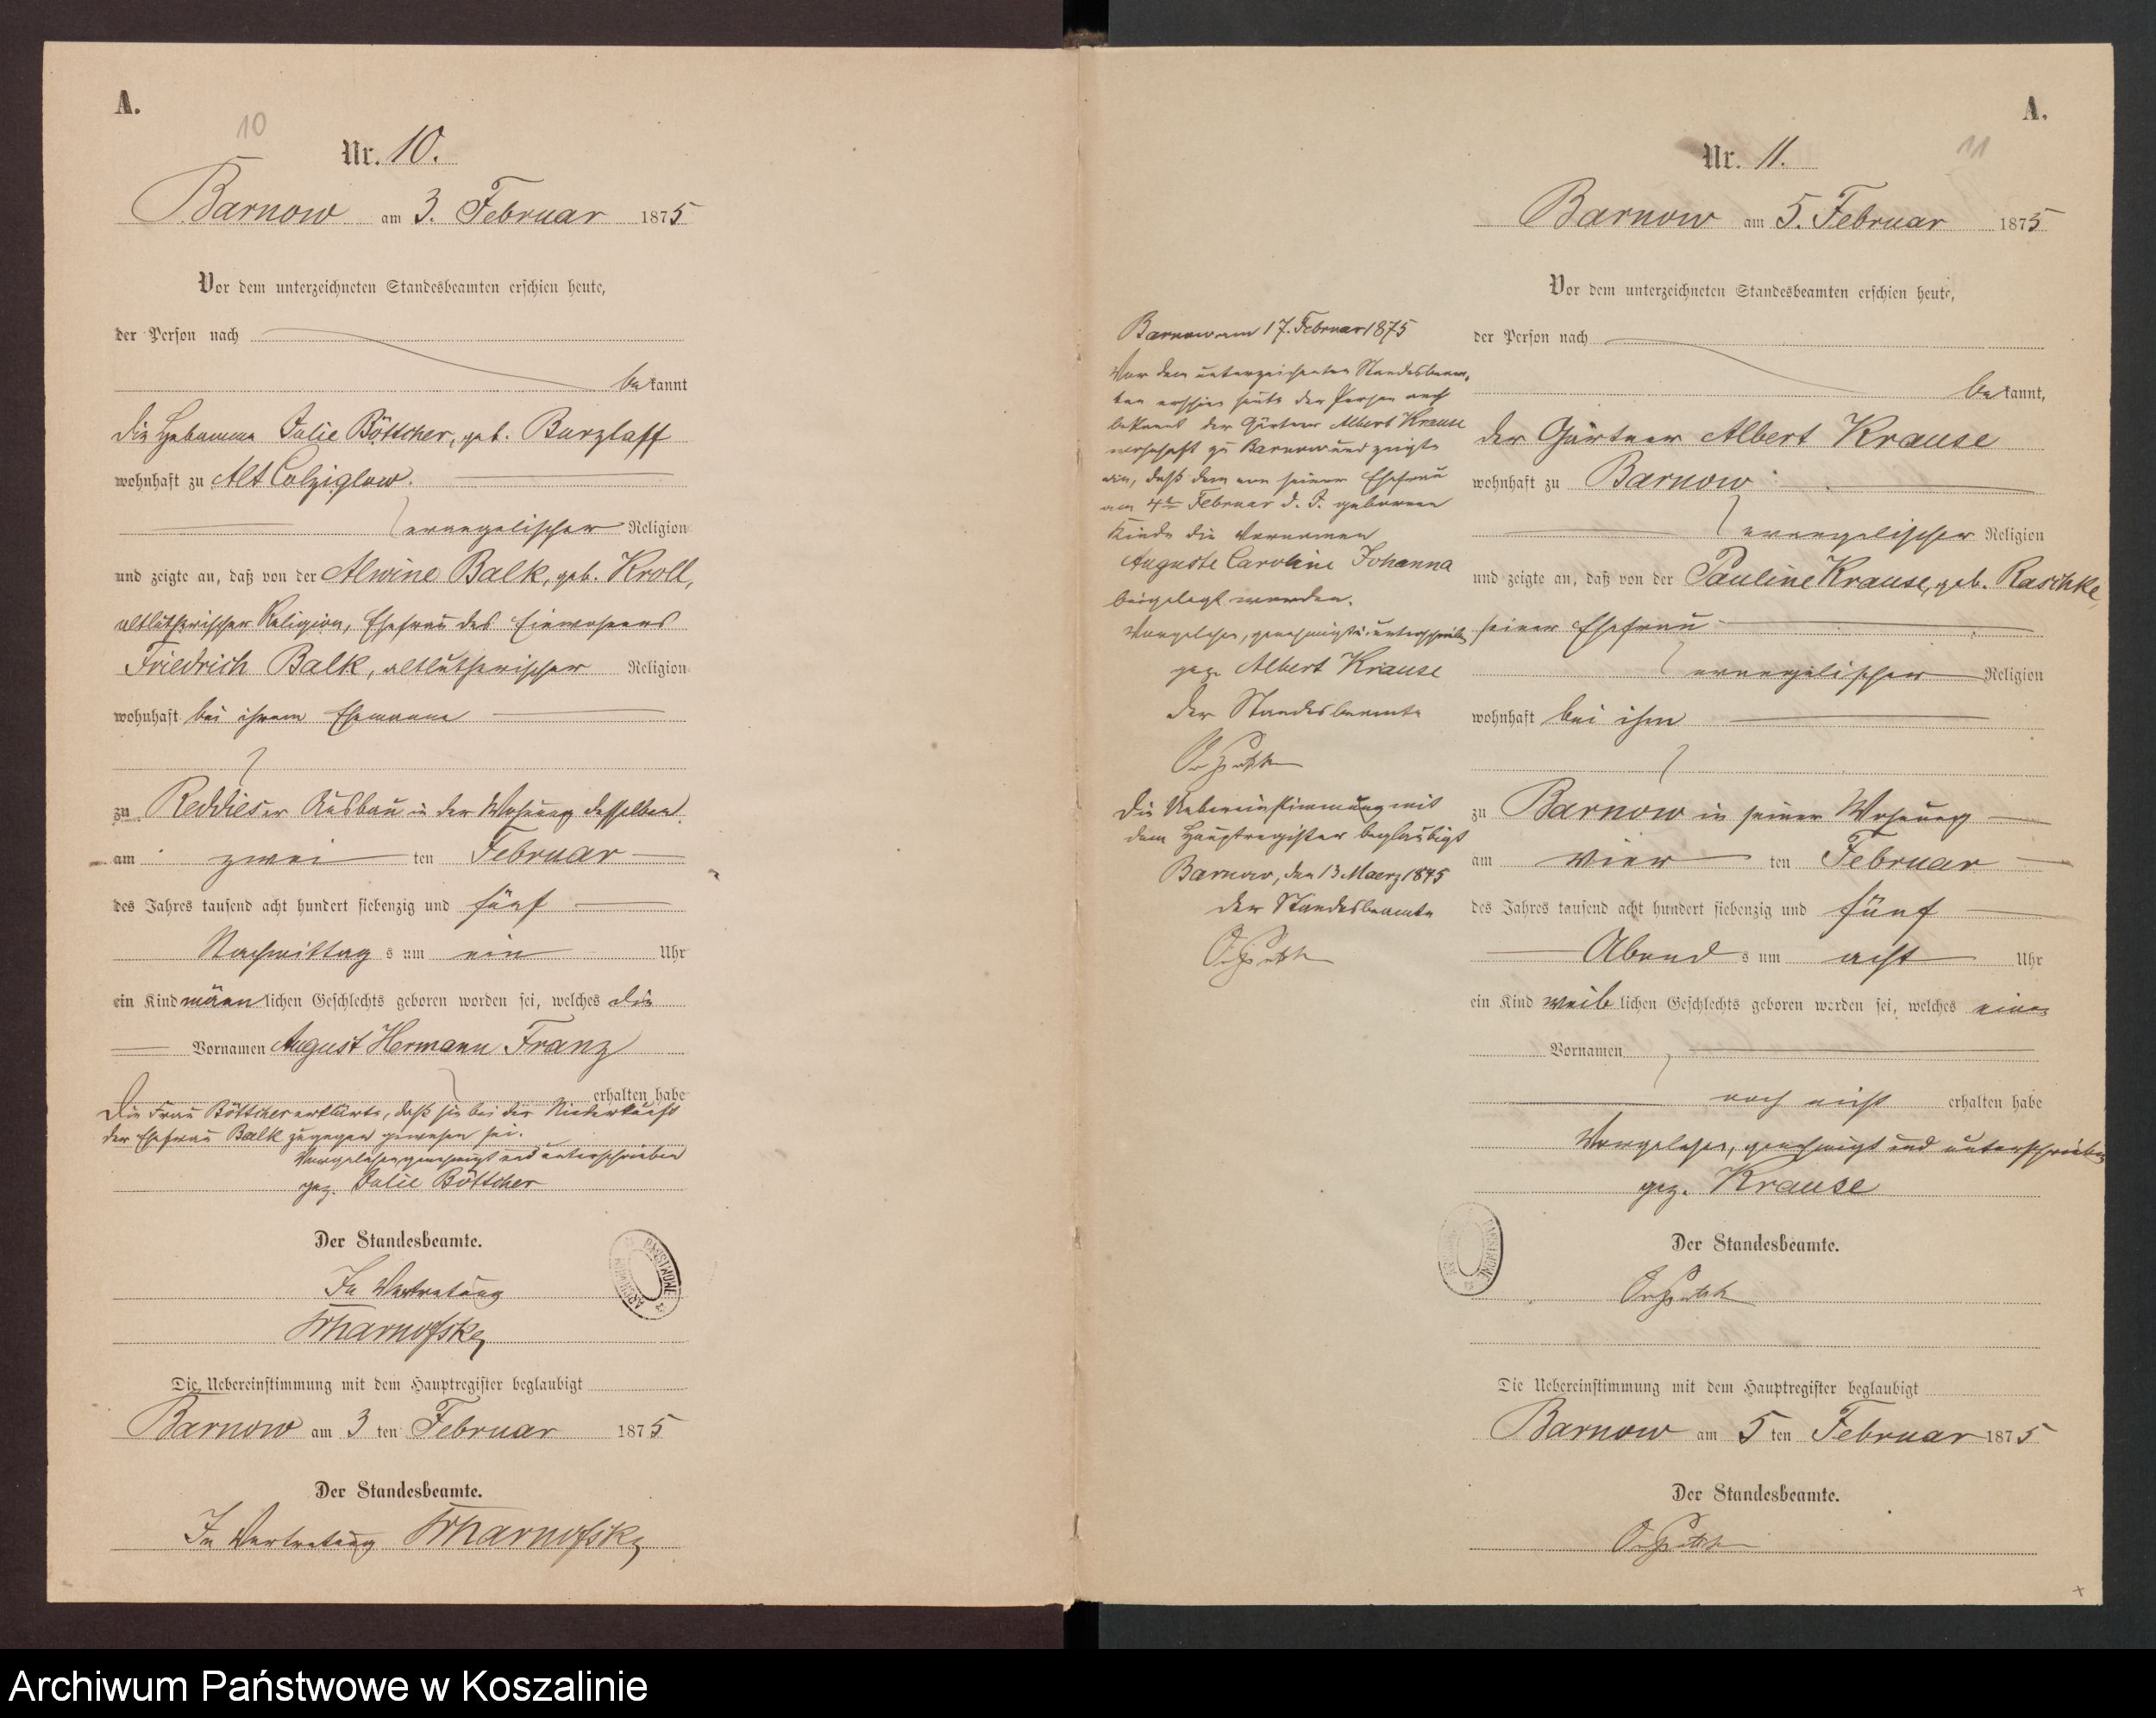 A.
10
Nr. 10.
Barnow am 3. Februar 1875
Vor dem unterzeichneten Standesbeamten erschien heute,
der Person nach
bekannt
die Hebamme Julie Böttcher, geb. Burzlaff
wohnhaft zu Alt Colziglow.
evangelischer Religion
und zeigte an, daß von der Alwine Balk, geb. Kroll,
altlutherischer Religion, Ehefrau des Einwohners
Friedrich Balk, altlutherischer Religion
wohnhaft bei ihrem Ehemanne
zu Reddieser Ausbau in der Wohnung desselben
am zwei ten Februar
des Jahres tausend acht hundert siebenzig und fünf
Nachmittag s um ein Uhr
ein Kind männlichen Geschlechts geboren worden sei, welches die
Vornamen August Hermann Franz
erhalten habe
Die Frau Böttcher erklärte, daß sie bei der Niederkunft
der Ehefrau Balk zugegen gewesen sei.
Vorgelesen, genehmigt und unterschrieben
gez. Julie Böttcher
Der Standesbeamte.
In Vertretung
Die Uebereinstimmung mit dem Hauptregister beglaubigt
Barnow am 3 ten Februar 1875
Der Standesbeamte.
In Vertretung
A.
11
Nr. 11.
Barnow am 5. Februar 1875
Vor dem unterzeichneten Standesbeamten erschien heute,
der Person nach
bekannt,
der Gärtner Albert Krause
wohnhaft zu Barnow
evangelischer Religion
und zeigte an, daß von der Pauline Krause, geb. Raschke,
seiner Ehefrau
evangelischer Religion
wohnhaft bei ihm
zu Barnow in seiner Wohnung
am vier ten Februar
des Jahres tausend acht hundert siebenzig und fünf
Abend s um acht Uhr
ein Kind weiblichen Geschlechts geboren worden sei, welches einen
Vornamen
noch nicht erhalten habe
Vorgelesen, genehmigt und unterschrieben
gez. Krause
Der Standesbeamte.
Die Uebereinstimmung mit dem Hauptregister beglaubigt
Barnow am 5 ten Februar 1875
Der Standesbeamte.
Barnow am 17. Februar 1875
Vor dem unterzeichneten Standesbeam-
ten erschien heute der Person nach
bekannt der Gärtner Albert Krause
wohnhaft zu Barnow und zeigte
an, daß dem von seiner Ehefrau
am 4ten Februar d. J. geborenen
Kinde die Vornamen
Auguste Caroline Johanna
beigelegt worden.
Vorgelesen, genehmigt u. unterschrieben
gez. Albert Krause
Der Standesbeamte
Die Uebereinstimmung mit
dem Hauptregister beglaubigt
Barnow, den 13 Maerz 1875
Der Standesbeamte
Archiwum Państwowe w Koszalinie